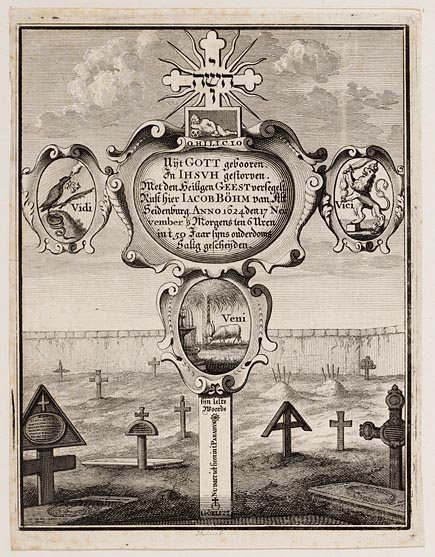 Uijt GOTT gebooren.
In IHSVH gestorven.
Met den Heiligen GEEST versegelt
Rust hier IACOB BÖHM van Alt
Seidenburg. ANNO 1624 den 17 No
vember 's Morgens ten 6 Uren
in t 50 Jaar syns ouderdoms
Salig gescheyden.
Vidi
Vici
Veni
Sijn leste
Woorde